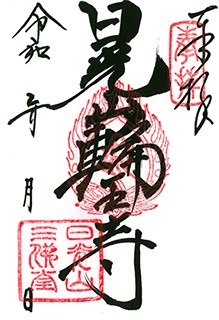 奉拝
晃山輪王寺
日光山
三佛堂
令和 年 月 日